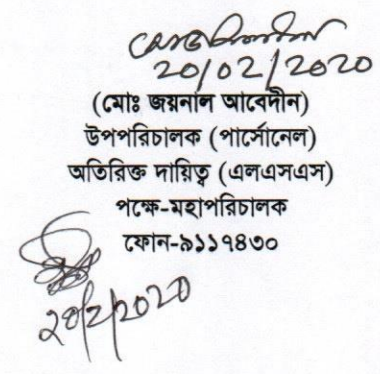 20/02/2020
(মোঃ জয়নাল আবেদীন)
উপপরিচালক (পার্সোনেল)
অতিরিক্ত দায়িত্ব (এলএসএস)
পক্ষে-মহাপরিচালক
ফোন-৯১১৭৪৩০
২০/২/২০২০